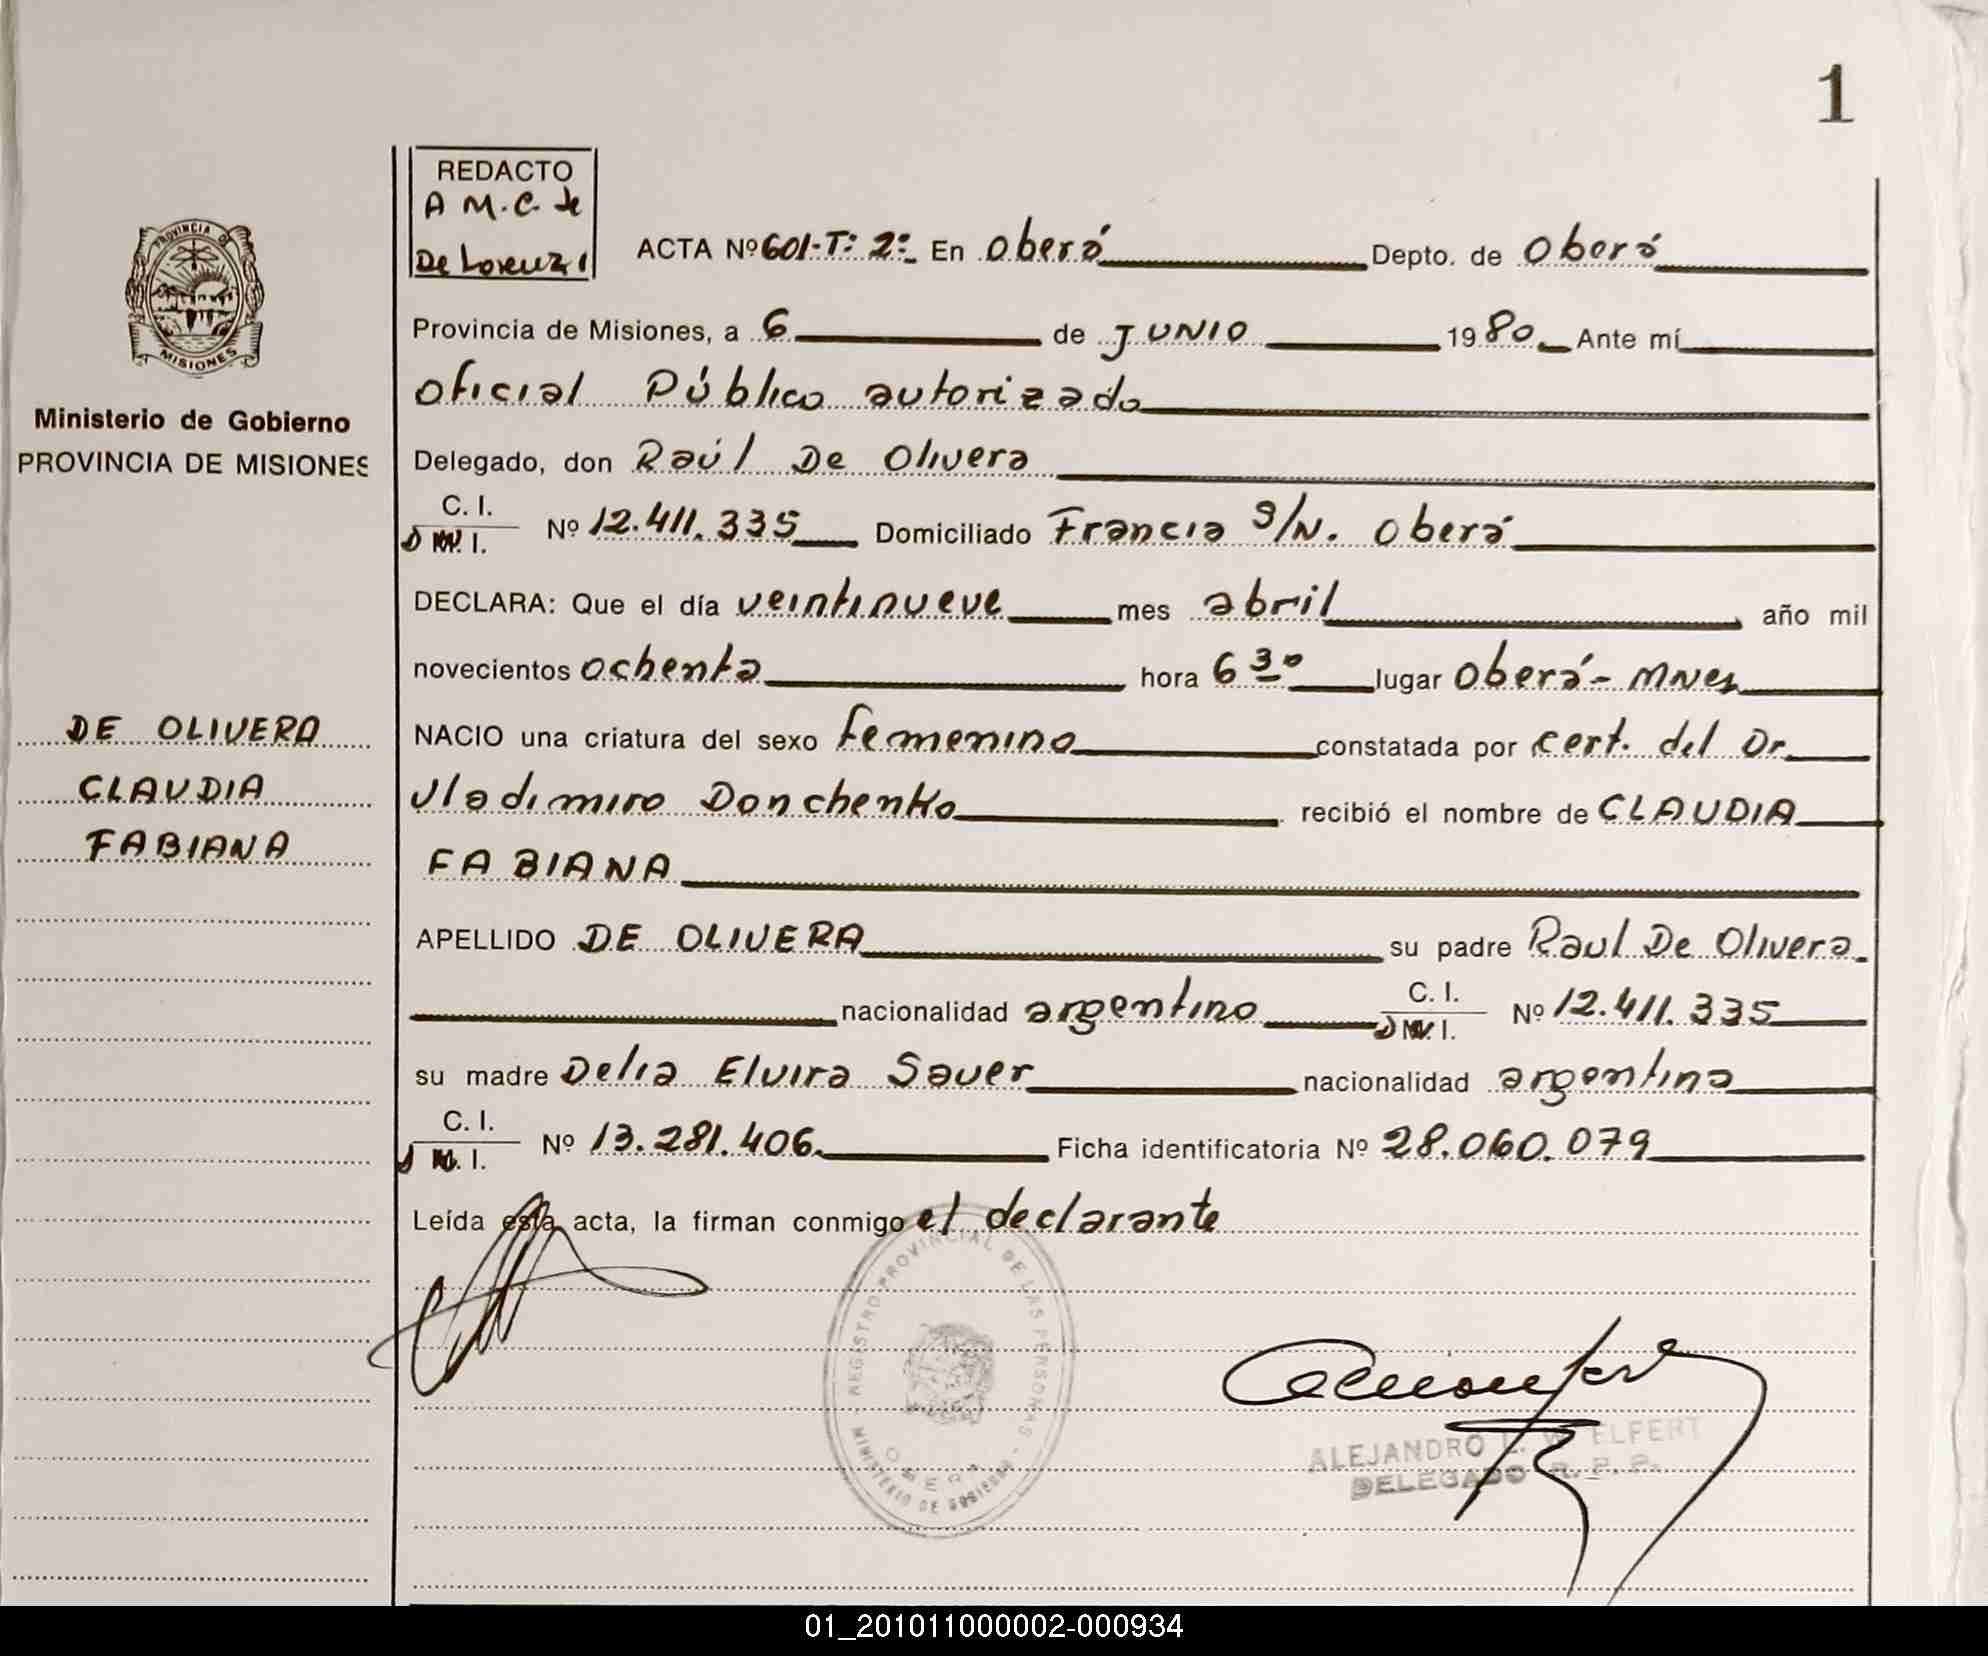 1
REDACTO
A M.C. de
De Lorenzi
PROVINCIA DE
MISIONES
Ministerio de Gobierno
PROVINCIA DE MISIONES
ACTA Nº 601-T: 2º En Oberá Depto. de Oberá
Provincia de Misiones, a 6 de JUNIO 1980 Ante mí
Oficial Público autorizado
Delegado, don Raúl De Olivera
C. I.
D.N.I. Nº 12.411.335 Domiciliado Francia S/N. Oberá
DECLARA: Que el día veintinueve mes abril año mil
novecientos ochenta hora 6 30 lugar Oberá-Mnes
NACIO una criatura del sexo femenino constatada por cert. del Dr.
Vladimiro Donchenko recibió el nombre de CLAUDIA
FABIANA
DE OLIVERA
CLAUDIA
FABIANA
APELLIDO DE OLIVERA su padre Raul De Olivera
nacionalidad argentino C. I. D.N.I. Nº 12.411.335
su madre Delia Elvira Sauer nacionalidad argentina
C. I.
D.N.I. Nº 13.281.406. Ficha identificatoria Nº 28.060.079
Leída esta acta, la firman conmigo el declarante
REGISTRO PROVINCIAL DE LAS PERSONAS - MINISTERIO DE GOBIERNO -
OBERA
ALEJANDRO L. WELFERT
DELEGADO R. P. P.
01_201011000002-000934